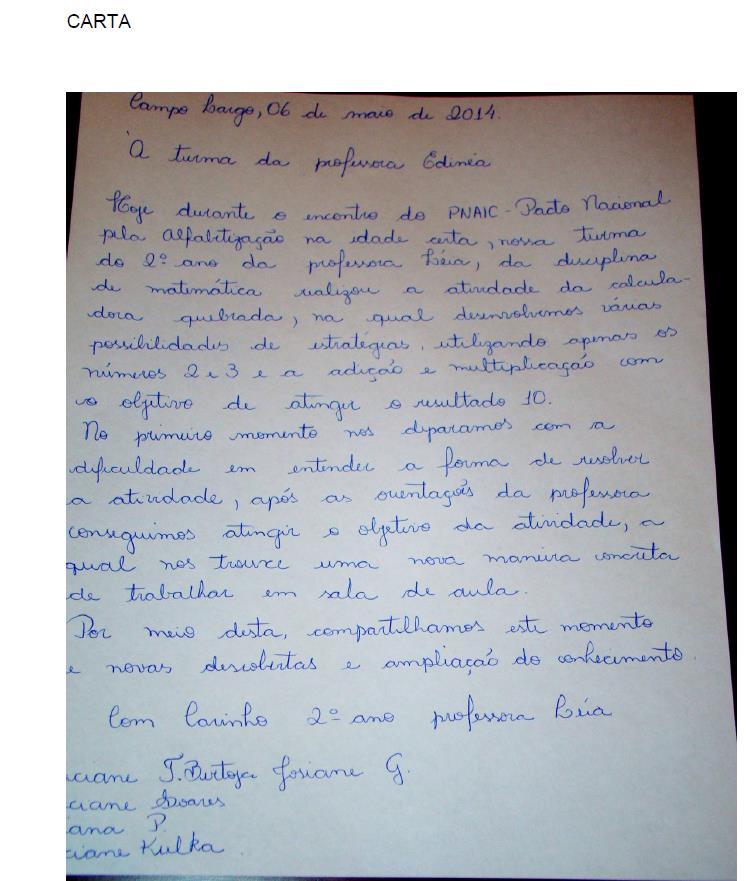 CARTA
Campo Largo, 06 de maio de 2014.
À turma da professora Edinéa
Hoje durante o encontro do PNAIC - Pacto Nacional
pela Alfabetização na idade certa, nossa turma
do 2º ano da professora Léia, da disciplina
de matemática realizou a atividade da calcula-
dora quebrada, na qual desenvolvemos várias
possibilidades de estratégias, utilizando apenas os
números 2 e 3 e a adição e multiplicação com
o objetivo de atingir o resultado 10.
No primeiro momento nos deparamos com a
dificuldade em entender a forma de resolver
a atividade, após as orientações da professora
conseguimos atingir o objetivo da atividade, a
qual nos trouxe uma nova maneira concreta
de trabalhar em sala de aula.
Por meio desta, compartilhamos este momento
e novas descobertas e ampliação do conhecimento.
Com Carinho 2º ano professora Léia
ciane T. Josiane G.
ciane Soares
ana P.
ciane Kulka